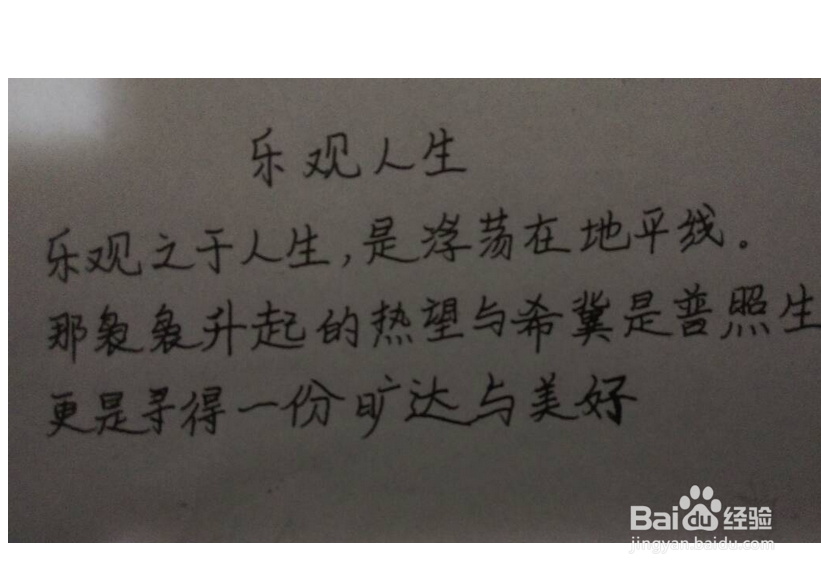 乐观人生
乐观之于人生,是涤荡在地平线。
那袅袅升起的热望与希冀是普照生
更是寻得一份旷达与美好
Baidu经验
jingyan.baidu.com